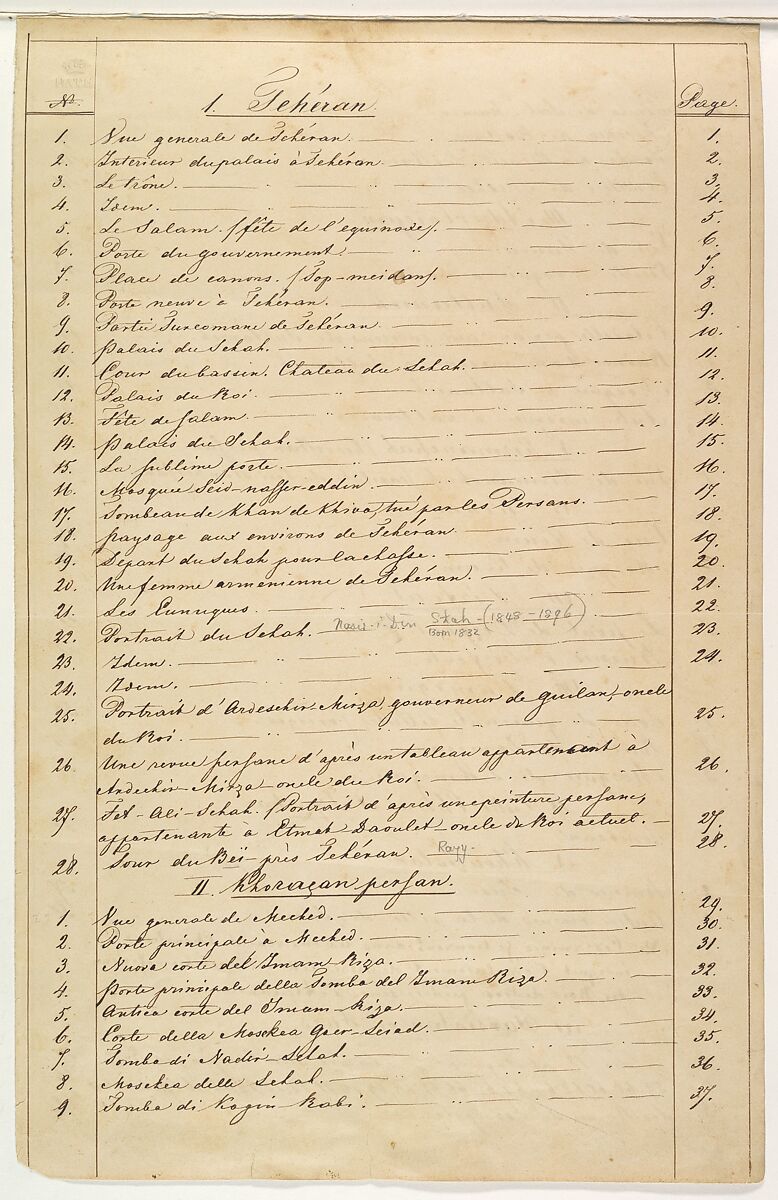 No. I. Téhéran. Page.
1. Vue generale de Téhéran. 1.
2. Interieur du palais à Téhéran. 2.
3. Le trône. 3.
4. Idem. 4.
5. Le Salam. (fête de l'equinoxe). 5.
6. Porte du gouvernement. 6.
7. Place de canons. (Top-meidan). 7.
8. Porte neuve à Téhéran. 8.
9. Partie Turcomane de Téhéran. 9.
10. Palais du Schah. 10.
11. Cour du bassin. Chateau du Schah. 11.
12. Palais du Roi. 12.
13. Fête de Salam. 13.
14. Palais du Schah. 14.
15. La sublime porte. 15.
16. Mosquée Seid-nasser-eddin. 16.
17. Tombeau de Khan de Khiva, tué par les Persans. 17.
18. Paysage aux environs de Téhéran. 18.
19. Départ du Schah pour la chasse. 19.
20. Une femme armenienne de Téhéran. 20.
21. Les Eunuques. 21.
22. Portrait du Schah. Nasir-i-Din Shah - (1848-1896) 22.
Born 1832
23. Idem. 23.
24. Idem. 24.
25. Portrait d'Ardeschir-Mirza, gouverneur de Guilan, oncle
du Roi. 25.
26. Une revue persane d'après un tableau appartenant à
Ardechir-Mirza-oncle du Roi. 26.
27. Fet-Ali-Schah. (Portrait d'après une peinture persane,
appartenante à Etmat Daoulet-oncle du Roi actuel. 27.
28. Tour du Reï-près Téhéran. Rayy. 28.
II. Khoraçan persan.
1. Vue generale de Meched. 29.
2. Porte principale à Meched. 30.
3. Nuova corte del Imam Riza. 31.
4. Porte principale della Tomba del Imam Riza. 32.
5. Antica corte del Imam-Riza. 33.
6. Corte della Moschea Goer-Seiad. 34.
7. Tomba di Nadir-Schah. 35.
8. Moschea delle Schah. 36.
9. Tomba di Kogin Rabi. 37.